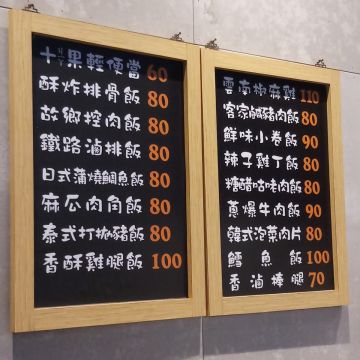 十果輕便當 60
酥炸排骨飯 80
故鄉控肉飯 80
鐵路滷排飯 80
日式蒲燒鯛魚飯 80
麻瓜肉角飯 80
泰式打拋豬飯 80
香酥雞腿飯 100
雲南椒麻雞 110
客家鹹豬肉飯 80
鮮味小卷飯 90
辣子雞丁飯 80
糖醋咕咾肉飯 80
蔥爆牛肉飯 90
韓式泡菜肉片 80
鱈魚飯 100
香滷棒腿 70